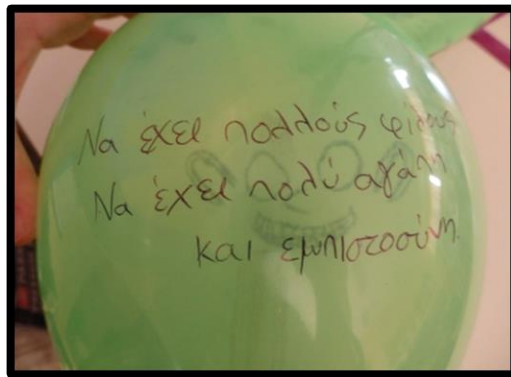 Να έχει πολλούς φίλους
Να έχει πολύ αγάπη
και εμπιστοσύνη.